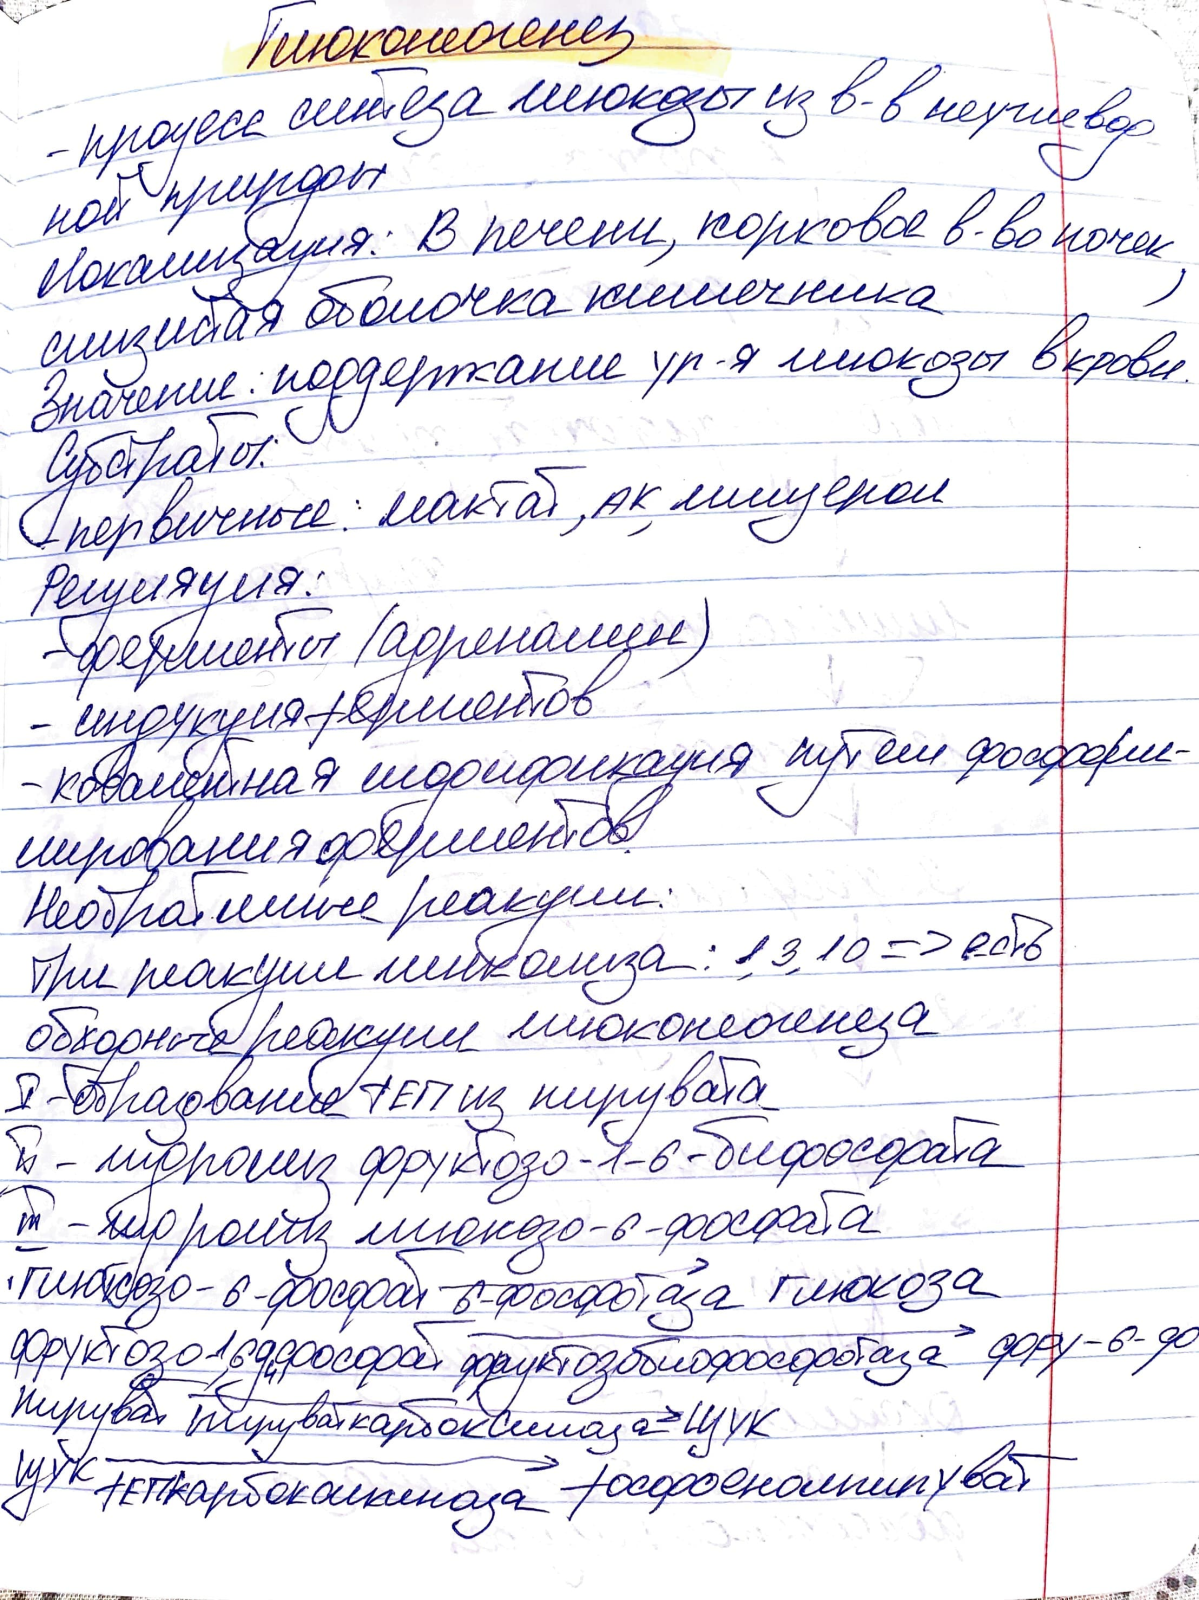 Глюконеогенез
- процесс синтеза глюкозы из в-в неуглевод
ной природы
Локализация: В печени, корковое в-во почек,
слизистая оболочка кишечника
Значение: поддержание ур-я глюкозы в крови.
Субстраты:
- первичные: лактат, АК, глицерол
Регуляция:
- ферменты (адреналин)
- индукция ферментов
- ковалентная модификация путем фосфори-
лирования ферментов.
Необратимые реакции:
Три реакции гликолиза: 1,3,10 => есть
обходные реакции глюконеогенеза
I - образование ФЕП из пирувата
II - гидролиз фруктозо-1-6-бифосфата
III - гидролиз глюкозо-6-фосфата
глюкозо-6-фосфат 6-фосфотаза глюкоза
фруктозо 1,6 дифосфат фруктозобиофосфотаза фру-6-фо
Пируват пируваткарбоксилаза ЩУК
ЩУК ФЕПкарбоксикиназа фосфоенолпируват